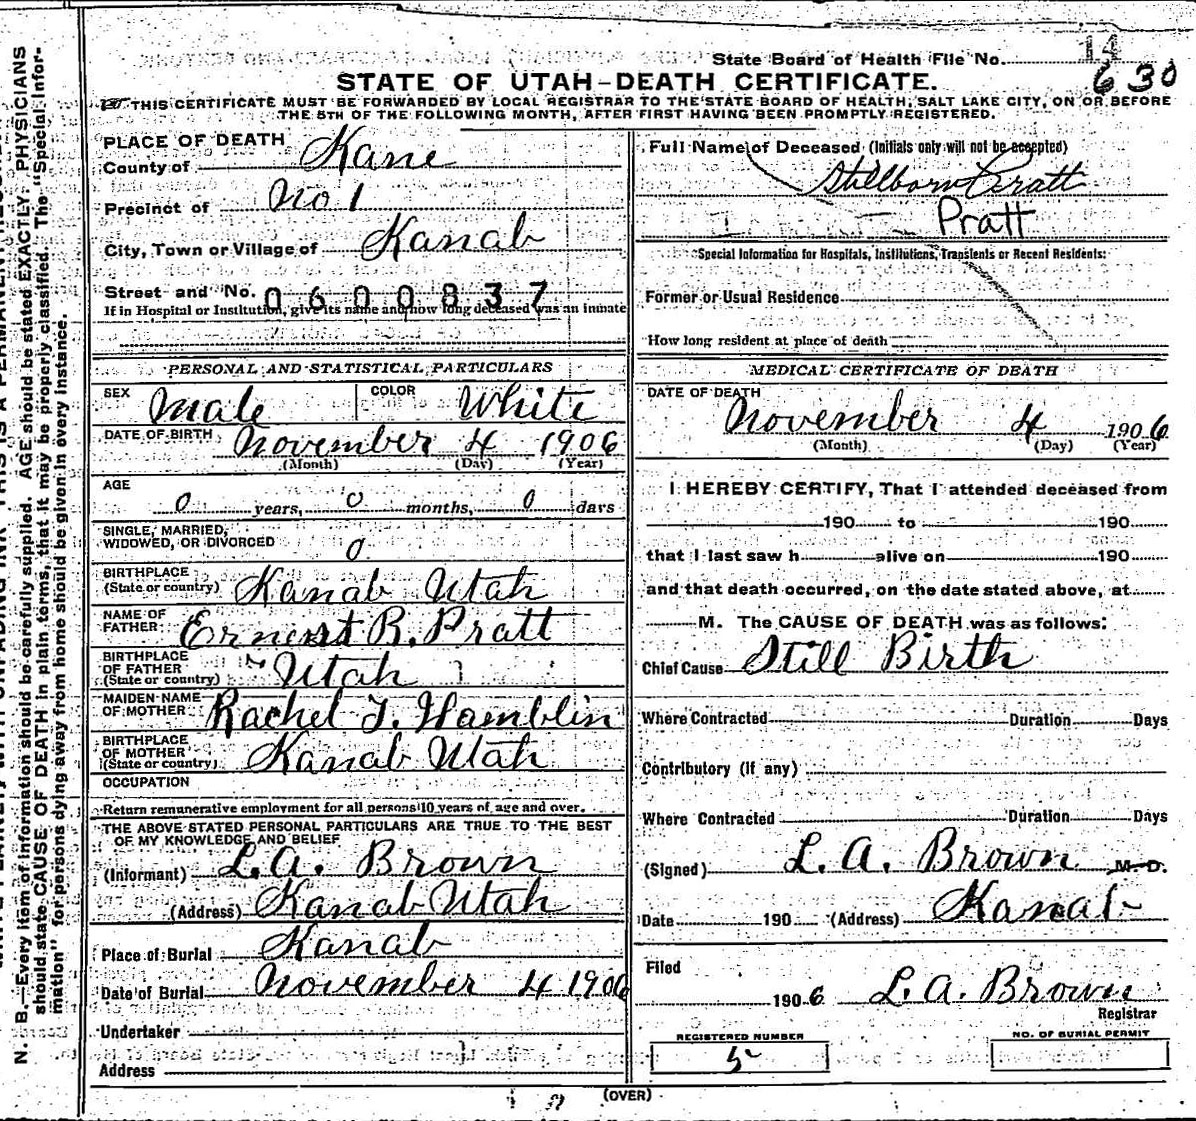 State Board of Health File No. 14
630
STATE OF UTAH—DEATH CERTIFICATE.
THIS CERTIFICATE MUST BE FORWARDED BY LOCAL REGISTRAR TO THE STATE BOARD OF HEALTH, SALT LAKE CITY, ON OR BEFORE
THE 5TH OF THE FOLLOWING MONTH, AFTER FIRST HAVING BEEN PROMPTLY REGISTERED.
PLACE OF DEATH
County of Kane
Precinct of No 1
City, Town or Village of Kanab
Street and No. 0600837
If in Hospital or Institution, give its name and how long deceased was an inmate
PERSONAL AND STATISTICAL PARTICULARS
SEX Male COLOR White
DATE OF BIRTH November 4 1906
(Month) (Day) (Year)
AGE
0 years, 0 months, 0 days
SINGLE, MARRIED,
WIDOWED, OR DIVORCED 0
BIRTHPLACE
(State or country) Kanab Utah
NAME OF
FATHER Ernest B. Pratt
BIRTHPLACE
OF FATHER
(State or country) Utah
MAIDEN NAME
OF MOTHER Rachel T. Hamblin
BIRTHPLACE
OF MOTHER
(State or country) Kanab Utah
OCCUPATION
Return remunerative employment for all persons 10 years of age and over.
THE ABOVE STATED PERSONAL PARTICULARS ARE TRUE TO THE BEST
OF MY KNOWLEDGE AND BELIEF
(Informant) L. A. Brown
(Address) Kanab Utah
Place of Burial Kanab
Date of Burial November 4 1906
Undertaker
Address
Full Name of Deceased (Initials only will not be accepted)
Stillborn Pratt
Pratt
Special Information for Hospitals, Institutions, Transients or Recent Residents:
Former or Usual Residence
How long resident at place of death
MEDICAL CERTIFICATE OF DEATH
DATE OF DEATH
November 4 1906
(Month) (Day) (Year)
I HEREBY CERTIFY, That I attended deceased from
190 to 190
that I last saw h alive on 190
and that death occurred, on the date stated above, at
M. The CAUSE OF DEATH was as follows:
Chief Cause Still Birth
Where Contracted Duration Days
Contributory (if any)
Where Contracted Duration Days
(Signed) L. A. Brown M. D.
Date 190 (Address) Kanab
Filed
1906 L. A. Brown
Registrar
REGISTERED NUMBER
5
NO. OF BURIAL PERMIT
(OVER)
N. B.—Every item of information should be carefully supplied. AGE should be stated EXACTLY. PHYSICIANS
should state CAUSE OF DEATH in plain terms, that it may be properly classified. The "Special Infor-
mation" for persons dying away from home should be given in every instance.